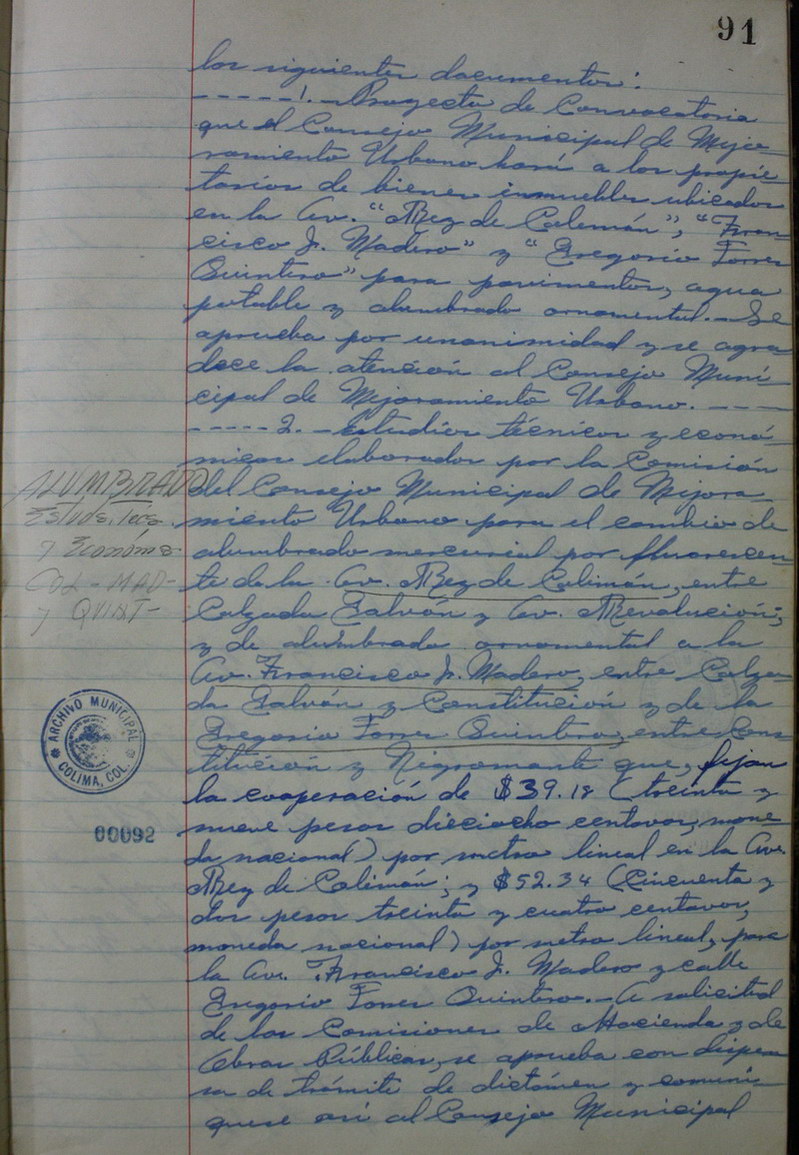 91
los siguientes documentos:
-----1.-Proyecto de Convocatoria
que el Consejo Municipal de Mejo-
ramiento Urbano hará a los propie-
tarios de bienes inmuebles ubicados
en la Av. "Rey de Colimán", "Fran-
cisco I. Madero" y "Gregorio Torres
Quintero" para pavimentos, agua
potable y alumbrado ornamental.-Se
aprueba por unanimidad y se agra-
dece la atención al Consejo Muni-
cipal de Mejoramiento Urbano.----
-----2.-Estudios técnicos y econó-
micos elaborados por la Comisión
del Consejo Municipal de Mejora-
miento Urbano para el cambio de
alumbrado mercurial por fluorescen-
te de la Av. Rey de Colimán, entre
Calzada Galván y Av. Revolución;
y de alumbrado ornamental a la
Av. Francisco I. Madero, entre Calza-
da Galván y Constitución y de la
Gregorio Torres Quintero, entre Cons-
titución y Nigromante que, fijan
la cooperación de $39.18 (treinta y
nueve pesos dieciocho centavos, mone-
da nacional) por metro lineal en la Av.
Rey de Colimán; y $52.34 (Cincuenta y
dos pesos treinta y cuatro centavos,
moneda nacional) por metro lineal, para
la Av. Francisco I. Madero y calle
Gregorio Torres Quintero.-A solicitud
de las Comisiones de Hacienda y de
Obras Públicas, se aprueba con dispen-
sa de trámite de dictámen y comuni-
quese así al Consejo Municipal
ALUMBRADO
Estuds. Tecs
y Económs
COL-MAD-
y QUINT-
ARCHIVO MUNICIPAL
COLIMA, COL.
00092